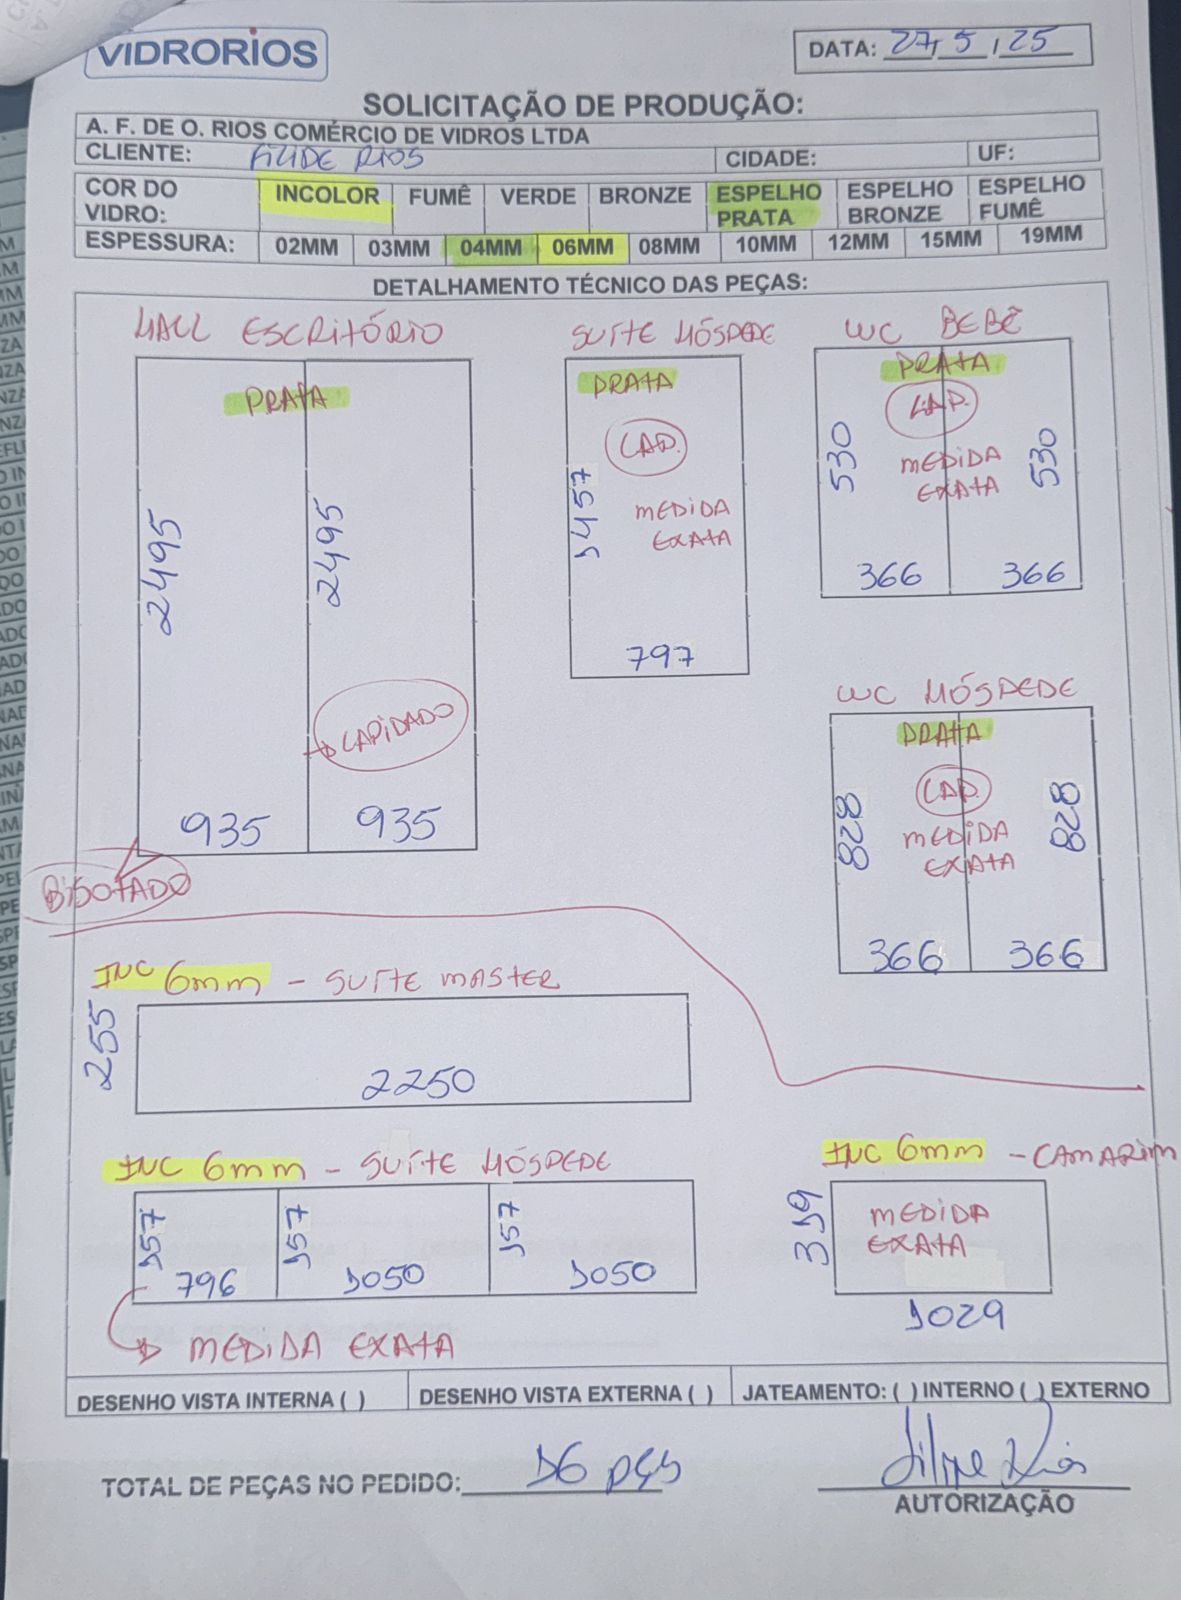 VIDRORIOS
DATA: 27/5/25
SOLICITAÇÃO DE PRODUÇÃO:
A. F. DE O. RIOS COMÉRCIO DE VIDROS LTDA
CLIENTE: FILIPE RIOS CIDADE: UF:
COR DO VIDRO: INCOLOR FUMÊ VERDE BRONZE ESPELHO PRATA ESPELHO BRONZE ESPELHO FUMÊ
ESPESSURA: 02MM 03MM 04MM 06MM 08MM 10MM 12MM 15MM 19MM
DETALHAMENTO TÉCNICO DAS PEÇAS:
HALL ESCRITÓRIO
PRATA
2495
2495
LAPIDADO
935
935
BISOTADO
SUÍTE HÓSPEDE
PRATA
LAP.
1457
MEDIDA
EXATA
797
WC BEBÊ
PRATA
LAP.
530
MEDIDA
EXATA
530
366
366
WC HÓSPEDE
PRATA
LAP.
828
MEDIDA
EXATA
828
366
366
INC 6mm - SUÍTE MASTER
255
2250
INC 6mm - SUÍTE HÓSPEDE
157
157
157
796
1050
1050
MEDIDA EXATA
INC 6mm - CAMARIM
319
MEDIDA
EXATA
1029
DESENHO VISTA INTERNA ( ) DESENHO VISTA EXTERNA ( ) JATEAMENTO: ( ) INTERNO ( ) EXTERNO
TOTAL DE PEÇAS NO PEDIDO: 16 pçs
Filipe Rios
AUTORIZAÇÃO